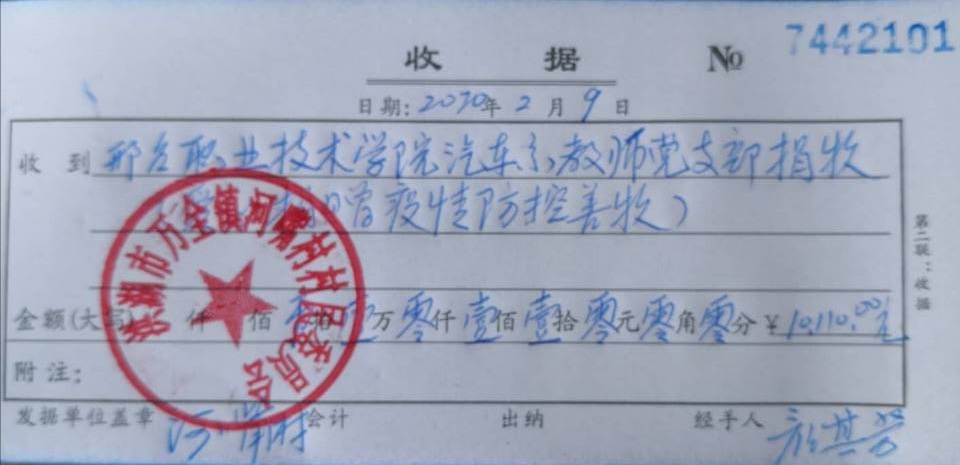 收 据 № 7442101
日期: 2020年 2 月 9 日
收 到 邢台职业技术学院汽车系教师党支部捐收
疫情防控善收)
金额(大写) 仟 佰 拾 壹 万 零 仟 壹 佰 壹 拾 零 元 零 角 零 分 ¥ 10,110.00元
附 注:
发据单位盖章 会计 出纳 经手人
第二联:收据
洪湖市万全镇河嘴村村民委员会